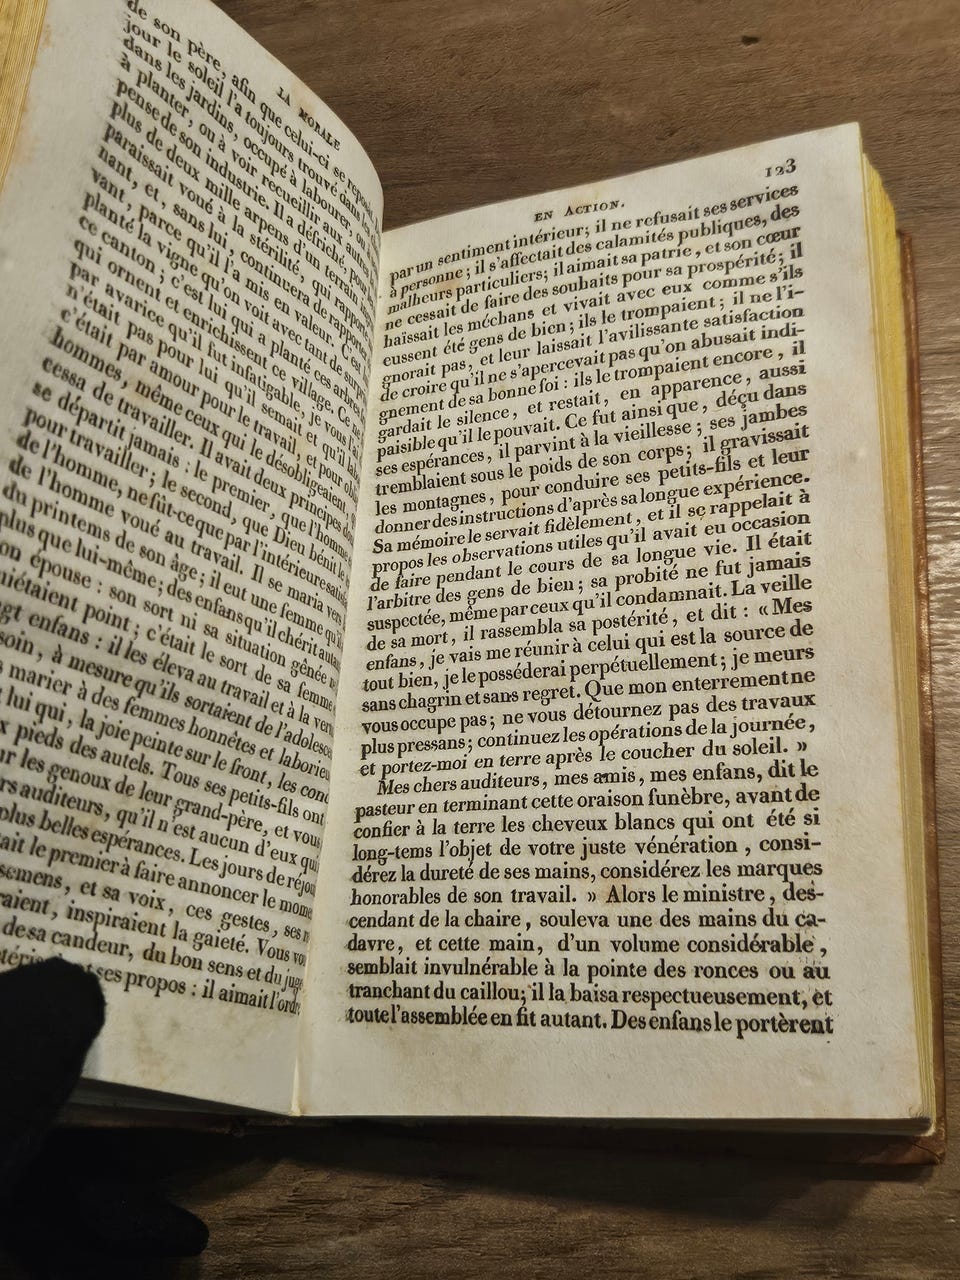 LA MORALE
de son père, afin que celui-ci se reposât,
jour le soleil l'a toujours trouvé dans les
dans les jardins, occupé à labourer, ou
à planter, ou à voir recueillir aux autres
pense de son industrie. Il a défriché, pour
plus de deux mille arpens d'un terrain
paraissait voué à la stérilité, qui rapporte
nant, et, sans lui, continuera de rapporter
vant, parce qu'il l'a mis en valeur. C'est
planté la vigne qu'on voit avec tant de surpri
ce canton; c'est lui qui a planté ces arbres
qui ornent et enrichissent ce village. Ce ne
par avarice qu'il fut infatigable, je vous l'ai
n'était pas pour lui qu'il semait et qu'il
c'était par amour pour le travail, et pour
hommes, même ceux qui le désobligeaient,
cessa de travailler. Il avait deux principes
se départit jamais : le premier, que l'homme
pour travailler; le second, que Dieu bénit le
de l'homme, ne fût-ce que par l'intérieure satis
de l'homme voué au travail. Il se maria vers
du printemps de son âge; il eut une femme qu'il
plus que lui-même; des enfans qu'il chérit
on épouse : son sort ni sa situation gênée
iétaient point; c'était le sort de sa femme
gt enfans : il les éleva au travail et à la vertu
soin, à mesure qu'ils sortaient de l'adolesc
marier à des femmes honnêtes et laborieu
lui qui, la joie peinte sur le front, les cond
x pieds des autels. Tous ses petits-fils ont
ur les genoux de leur grand-père, et vous
rs auditeurs, qu'il n'est aucun d'eux qui
plus belles espérances. Les jours de réjou
ait le premier à faire annoncer le mome
semens, et sa voix, ces gestes, ses
raient, inspiraient la gaieté. Vous vou
de sa candeur, du bon sens et du juge
ses propos : il aimait l'ordre
EN ACTION. 123
par un sentiment intérieur; il ne refusait ses services
à personne; il s'affectait des calamités publiques, des
malheurs particuliers; il aimait sa patrie, et son cœur
ne cessait de faire des souhaits pour sa prospérité; il
haïssait les méchans et vivait avec eux comme s'ils
eussent été gens de bien; ils le trompaient; il ne l'i-
gnorait pas, et leur laissait l'avilissante satisfaction
de croire qu'il ne s'apercevait pas qu'on abusait indi-
gnement de sa bonne foi : ils le trompaient encore, il
gardait le silence, et restait, en apparence, aussi
paisible qu'il le pouvait. Ce fut ainsi que, déçu dans
ses espérances, il parvint à la vieillesse; ses jambes
tremblaient sous le poids de son corps; il gravissait
les montagnes, pour conduire ses petits-fils et leur
donner des instructions d'après sa longue expérience.
Sa mémoire le servait fidèlement, et il se rappelait à
propos les observations utiles qu'il avait eu occasion
de faire pendant le cours de sa longue vie. Il était
l'arbitre des gens de bien; sa probité ne fut jamais
suspectée, même par ceux qu'il condamnait. La veille
de sa mort, il rassembla sa postérité, et dit : « Mes
enfans, je vais me réunir à celui qui est la source de
tout bien, je le posséderai perpétuellement; je meurs
sans chagrin et sans regret. Que mon enterrement ne
vous occupe pas; ne vous détournez pas des travaux
plus pressans; continuez les opérations de la journée,
et portez-moi en terre après le coucher du soleil. »
Mes chers auditeurs, mes amis, mes enfans, dit le
pasteur en terminant cette oraison funèbre, avant de
confier à la terre les cheveux blancs qui ont été si
long-tems l'objet de votre juste vénération, consi-
dérez la dureté de ses mains, considérez les marques
honorables de son travail. » Alors le ministre, des-
cendant de la chaire, souleva une des mains du ca-
davre, et cette main, d'un volume considérable,
semblait invulnérable à la pointe des ronces ou au
tranchant du caillou; il la baisa respectueusement, et
toute l'assemblée en fit autant. Des enfans le portèrent